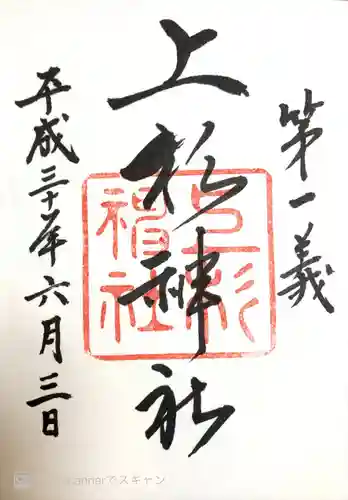 第一義
上杉神社
上杉神社
平成三十年六月三日
cannerでスキャン